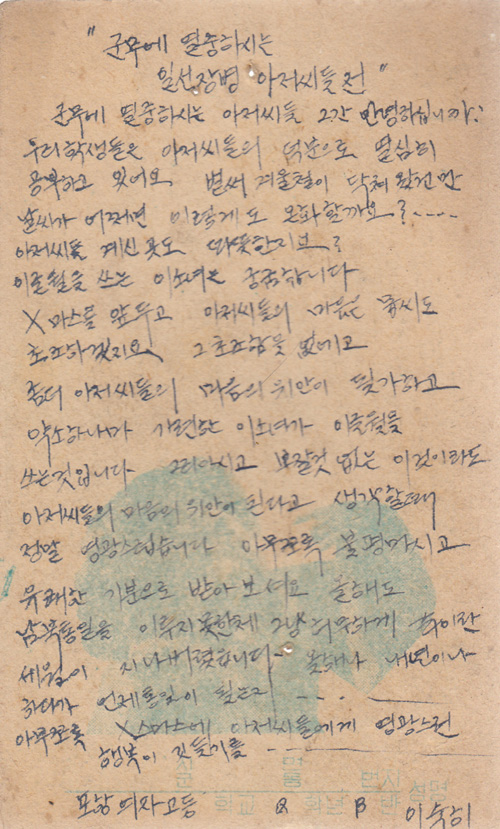 "군무에 열중하시는
일선장병 아저씨들전"
군무에 열중하시는 아저씨들 그간 안녕하십니까?
우리 학생들은 아저씨들의 덕분으로 열심히
공부하고 있어요 벌써 겨울철이 닥쳐 왔건만
날씨가 어쩌면 이렇게도 온화할까요?....
아저씨들 계신곳도 따뜻한지요?
이글월을 쓰는 이소녀는 궁금합니다
X마스를 앞두고 아저씨들의 마음은
초조하겠지요 그 초조함을 없애고
좀더 아저씨들의 마음의 위안이 될가하고
약소하나마 가련한 이소녀가 이글월을
쓰는것입니다 그리아시고 보잘것 없는 이것이라도
아저씨들의 마음의 위안이 된다고 생각할때
정말 영광스럽습니다 아무쪼록 불평마시고
유쾌한 기분으로 받아 보셔요 올해도
남북통일을 이루지 못한체 그냥 허무하게
세월이 지나버렸습니다 내년이나
하다가 언제통일이 될는지 ....
아무쪼록 X스마스에 아저씨들에게 영광스런
행복이 깃들기를 ----
여자고등 학교 2 학년 B 이숙희